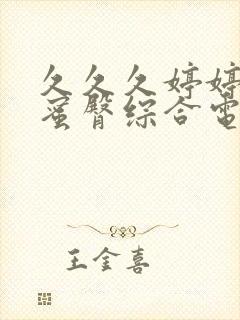 久久久婷婷
蜜臀综合电
王金喜